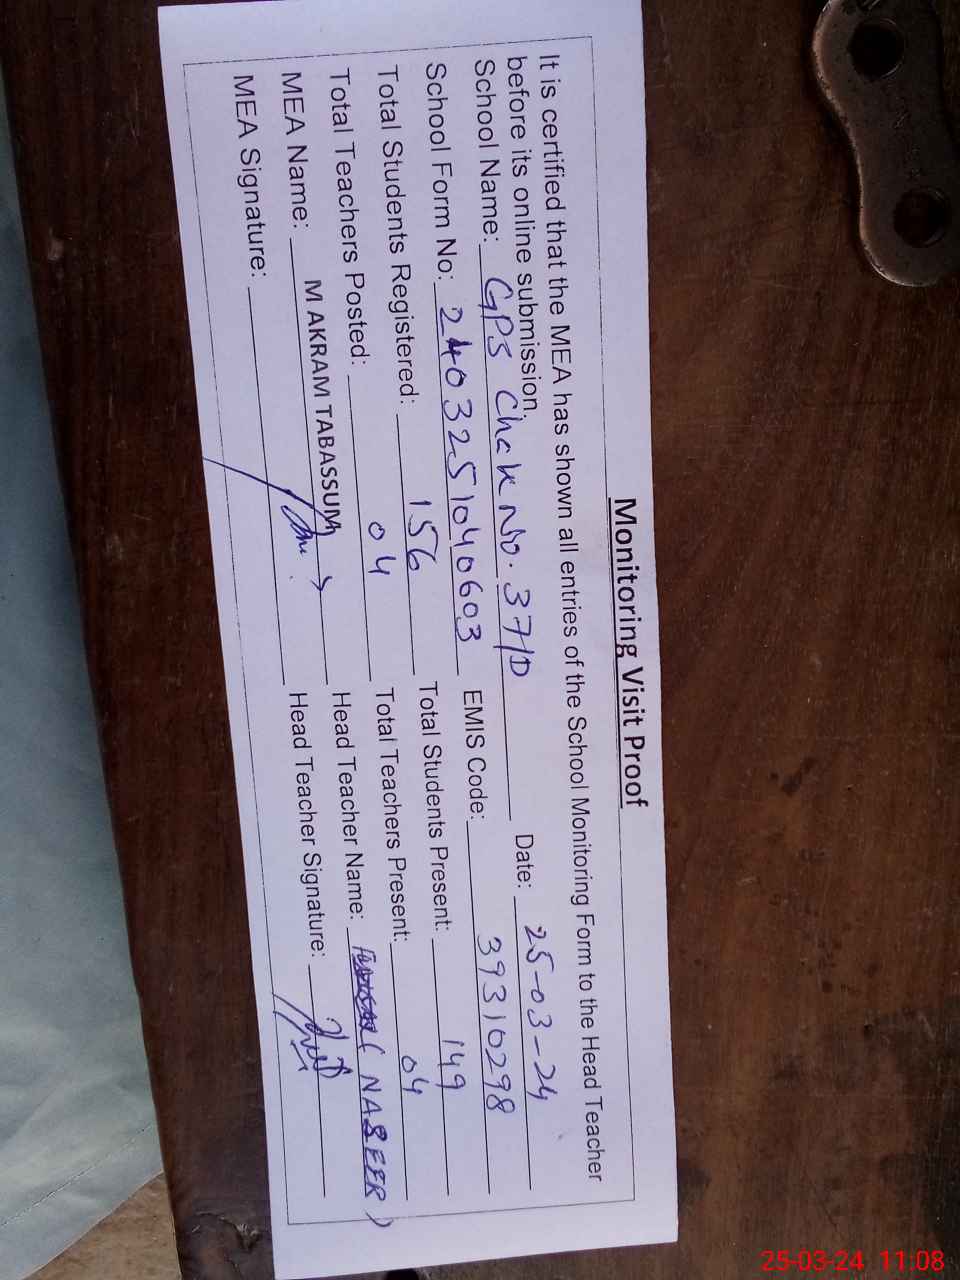 Monitoring Visit Proof
It is certified that the MEA has shown all entries of the School Monitoring Form to the Head Teacher
before its online submission.
School Name: GPS Chak No. 37/D Date: 25-03-24
School Form No: 2403251040603 EMIS Code: 39310298
Total Students Registered: 156 Total Students Present: 149
Total Teachers Posted: 04 Total Teachers Present: 04
MEA Name: M AKRAM TABASSUM Head Teacher Name: (NASEER)
MEA Signature: Head Teacher Signature:
25-03-24 11:08